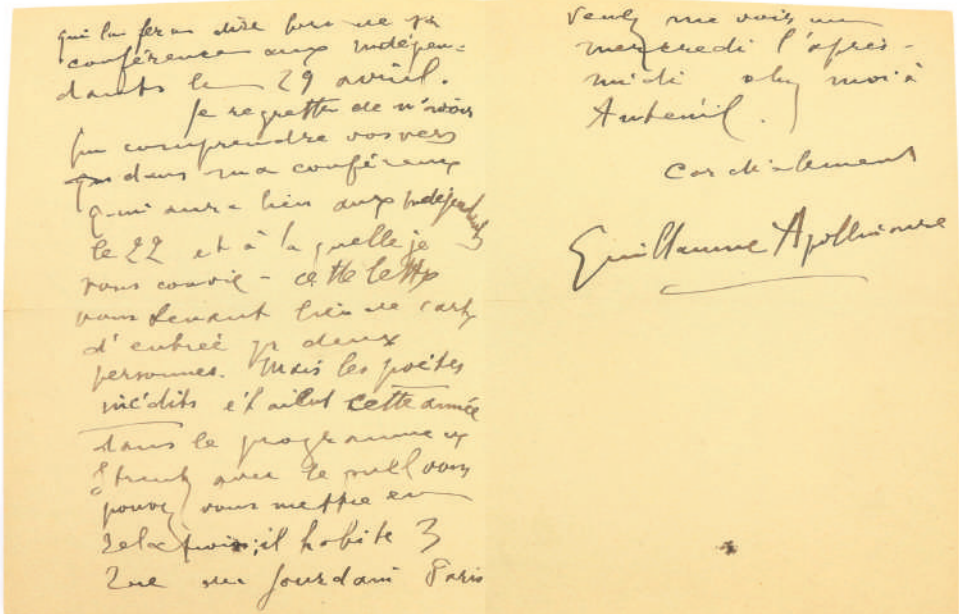 qui les feras dire lors de sa
conférence aux Indépen-
dants le 29 avril.
Je regrette de n'avoir
pu comprendre vos vers
dans ma conférence
qui aura lieu aux Indépendants
le 22 et à laquelle je
vous convie - cette lettre
vous tenant lieu de carte
d'entrée pr deux
personnes. Mais les poètes
inédits étaient cette année
dans le programme
avec lequel vous
pouvez vous mettre en
relations; il habite 3
rue du Jourdain Paris
venez me voir un
mercredi l'après-
midi chez moi à
Auteuil.
Cordialement
Guillaume Apollinaire